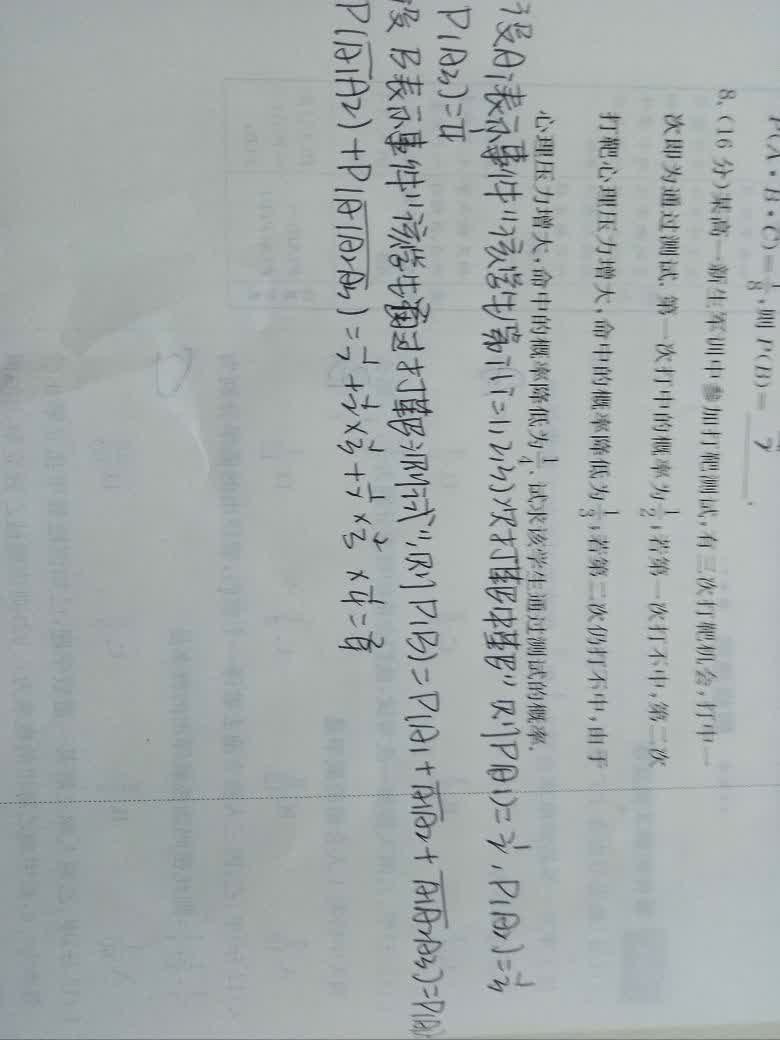 P(A·B·C)=1/8,则P(B)=____.
8.(16分)某高一新生军训中参加打靶测试,有三次打靶机会,打中一
次即为通过测试.第一次打中的概率为1/2;若第一次打不中,第二次
打靶心理压力增大,命中的概率降低为1/3;若第二次仍打不中,由于
心理压力增大,命中的概率降低为1/4.试求该学生通过测试的概率.
设Ai表示事件"该学生第i(i=1,2,3)次打靶中靶",则P(A1)=1/2,P(A2)=1/3
P(A3)=1/4
设B表示事件"该学生通过打靶测试",则P(B)=P(A1+A1A2+A1A2A3)=P(A1)
P(A1A2)+P(A1A2A3)=1/2+1/2×1/3+1/2×2/3×1/4=3/4